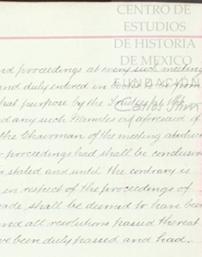 CENTRO DE
ESTUDIOS
DE HISTORIA
DE MEXICO
FUNDACIÓN
nd proceedings at every such meeting
and duly entered in books to be from
that purpose by the
and any such Minutes as aforesaid if
the Chairman of the meeting at which
proceedings had shall be conclusive
stated and until the contrary is
in respect of the proceedings of
made, shall be deemed to have been
and all resolutions passed thereat
ve been duly passed and had.